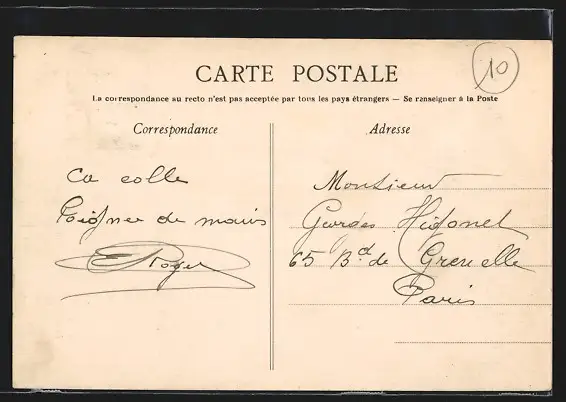 10
CARTE POSTALE
La correspondance au recto n'est pas acceptée par tous les pays étrangers — Se renseigner à la Poste
Correspondance
Adresse
Ca colle
Poignee de mains
E Roger
Monsieur
Georges Higonet
65 Bd de Grenelle
Paris